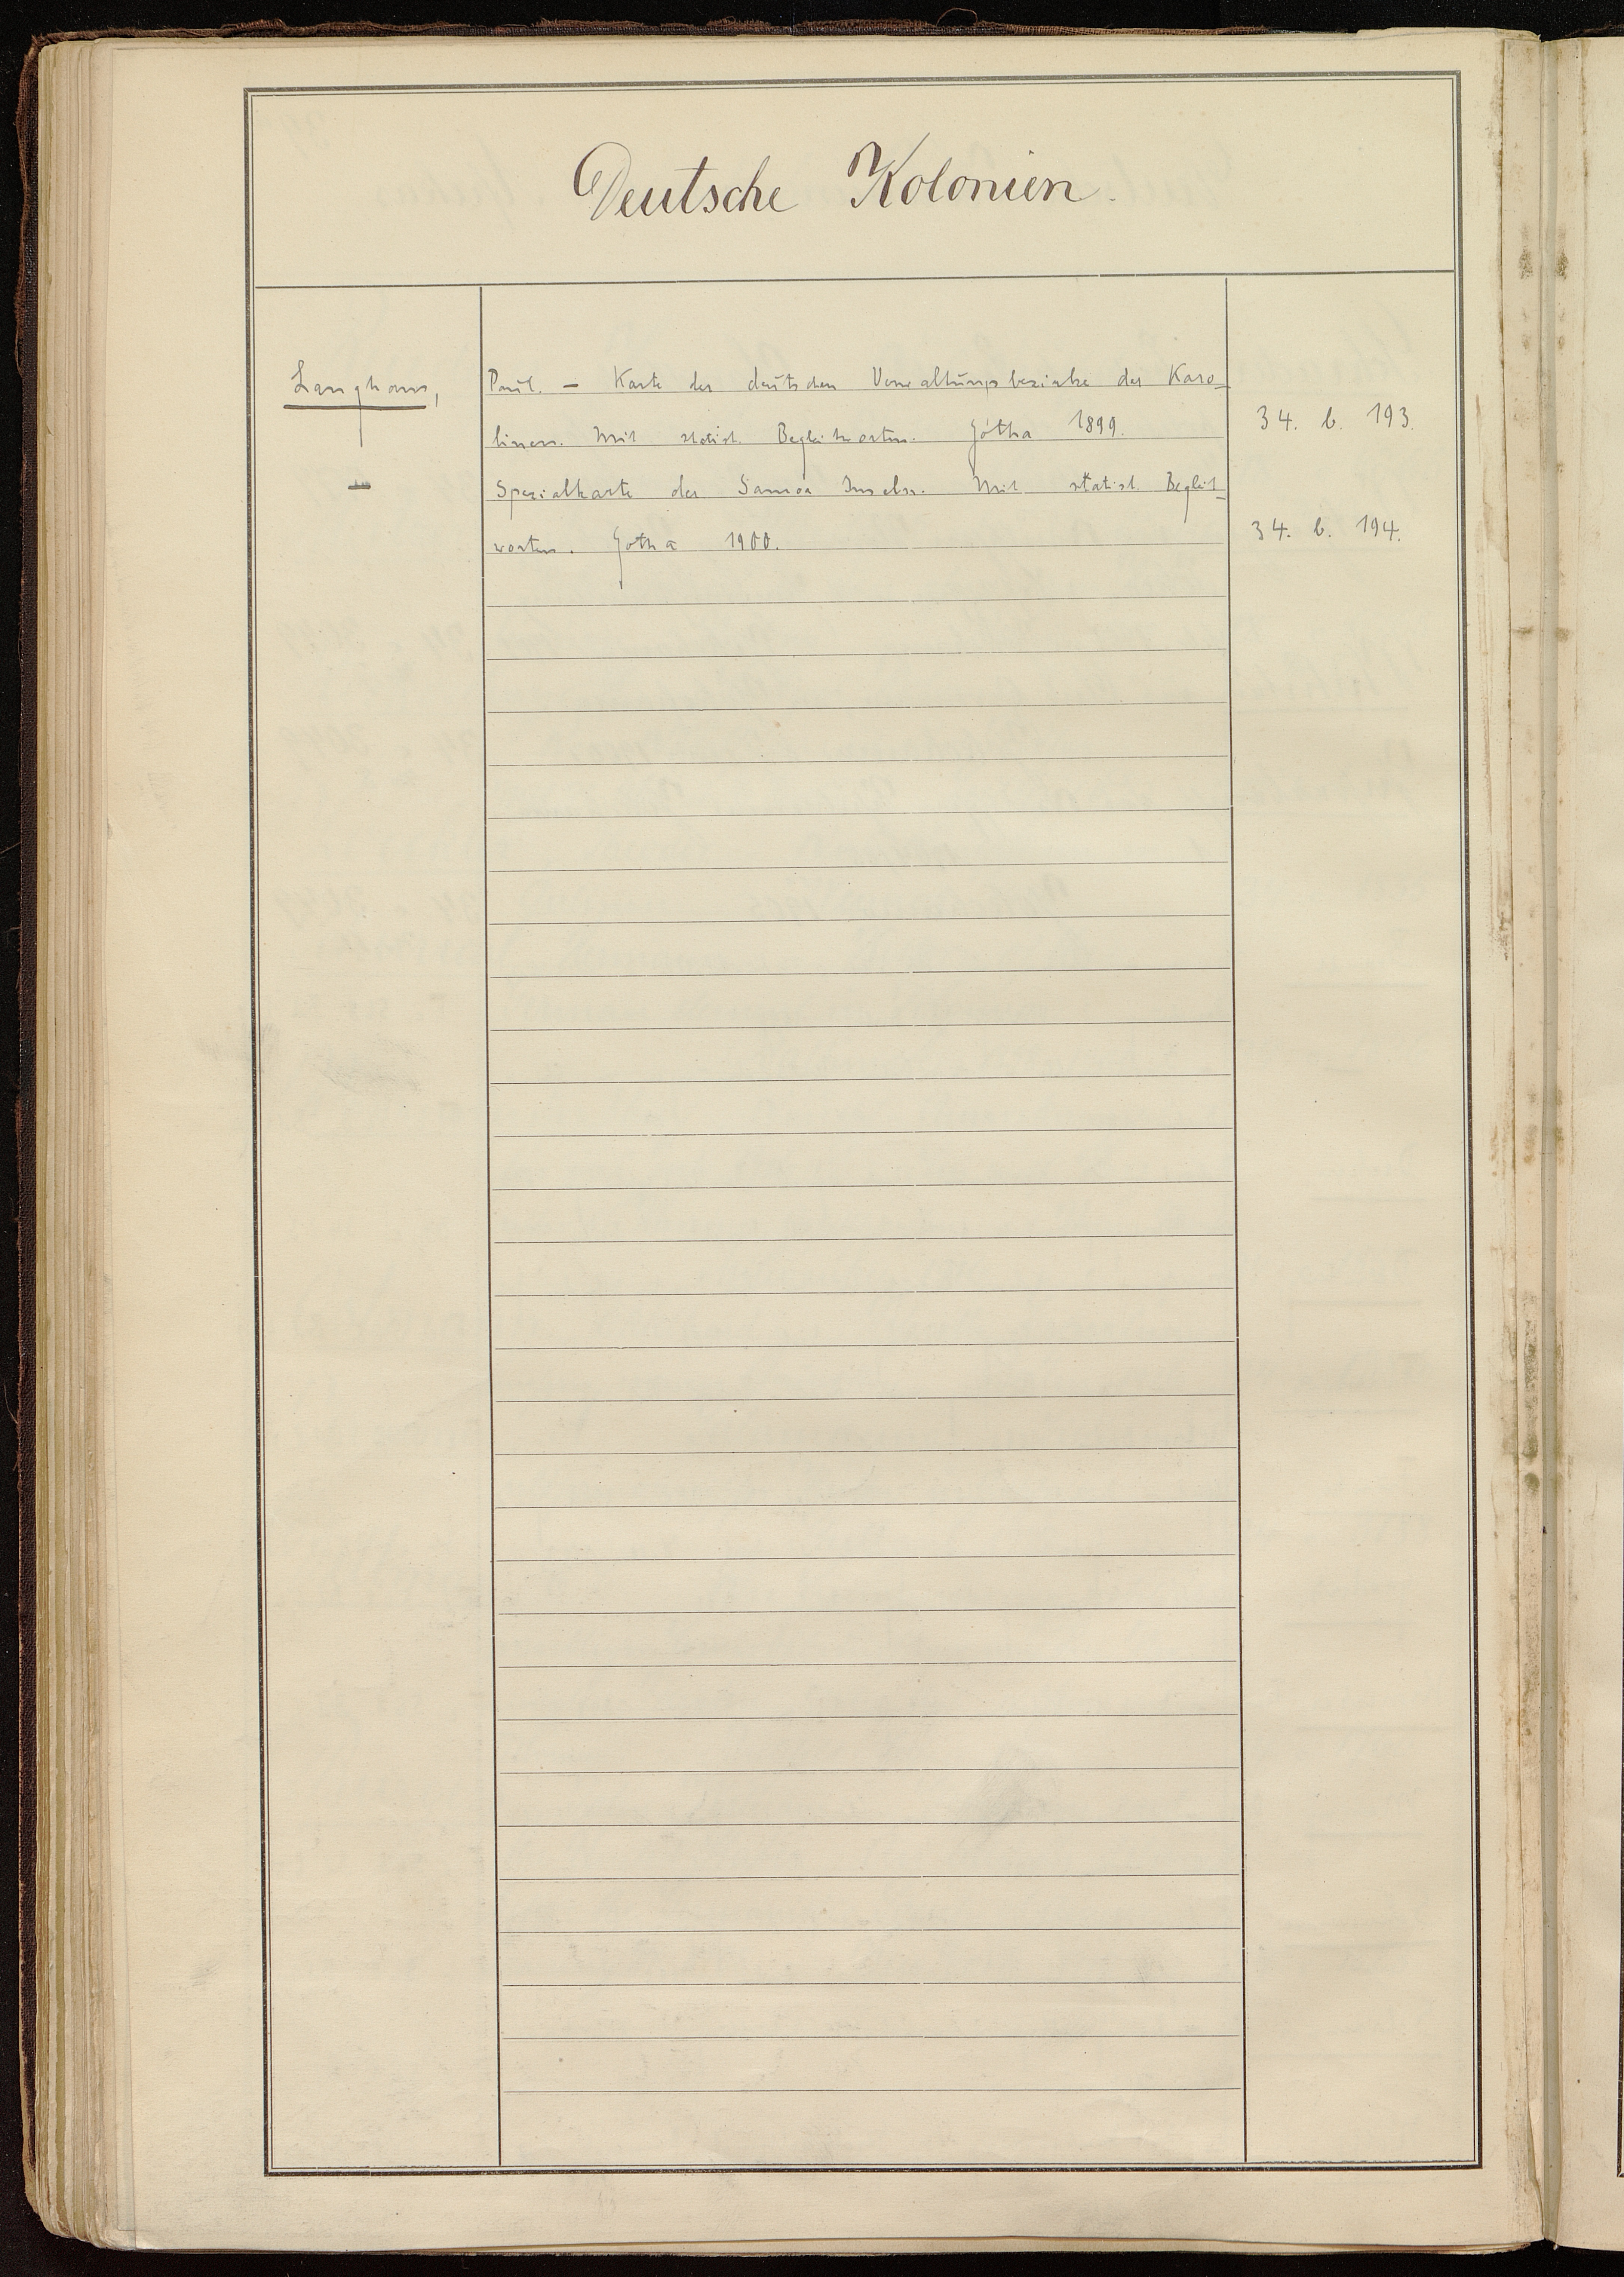 Deutsche Kolonien.
Langhans, Paul. — Karte der deutschen Verwaltungsbezirke der Karo-
linen. Mit statist. Begleitworten. Gotha 1899. 34. b. 193.
— Spezialkarte der Samoa Inseln. Mit statist. Begleit-
worten. Gotha 1900. 34. b. 194.